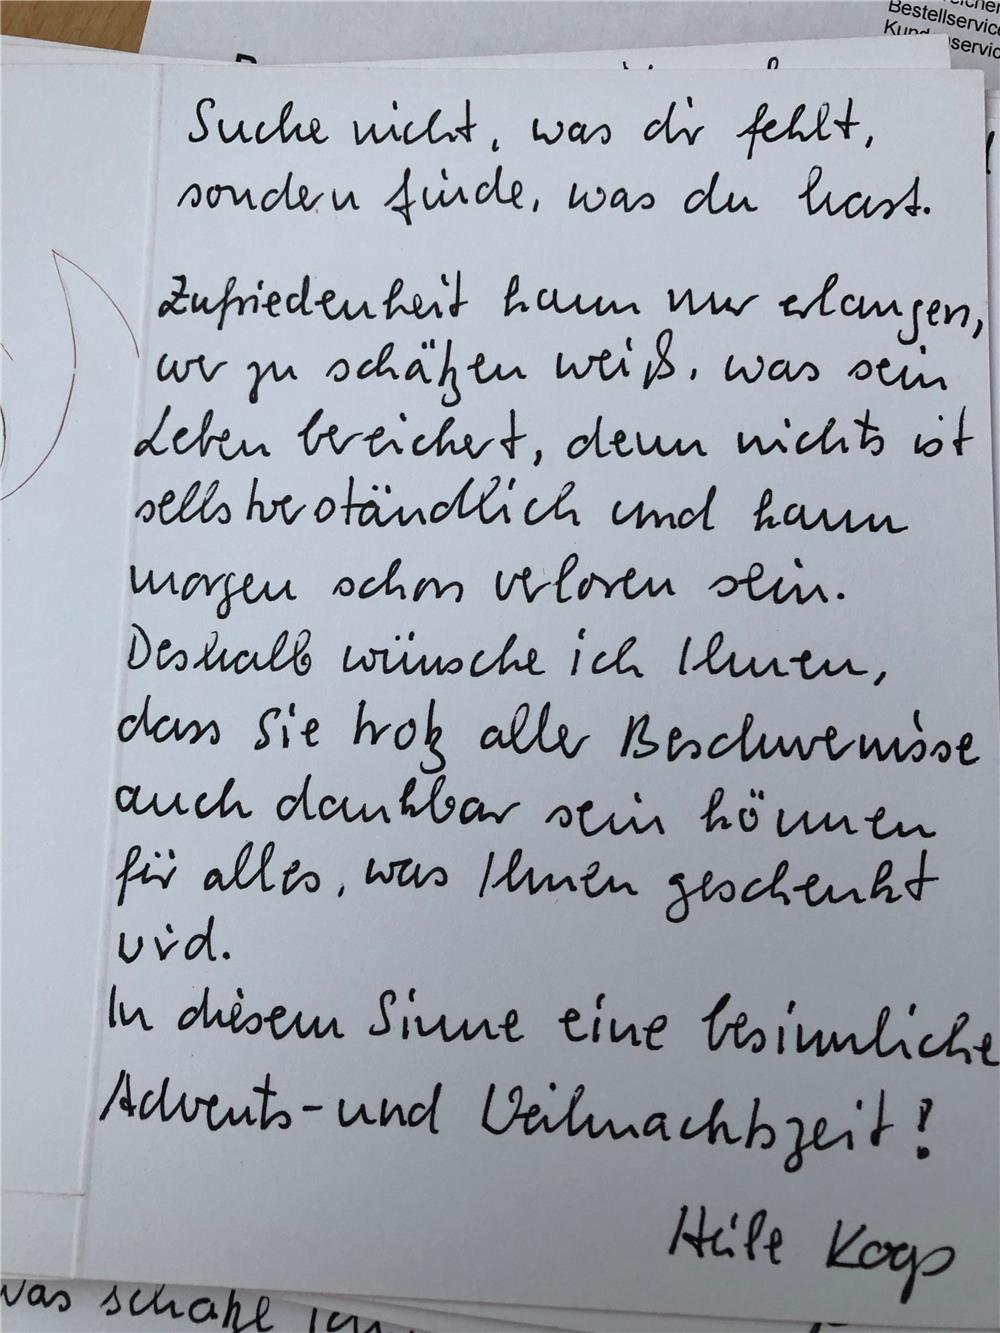 Bestellservice
Suche nicht, was dir fehlt,
sondern finde, was du hast.
Zufriedenheit kann nur erlangen,
wer zu schätzen weiß, was sein
Leben bereichert, denn nichts ist
selbstverständlich und kann
morgen schon verloren sein.
Deshalb wünsche ich Ihnen,
dass Sie trotz aller Beschwernisse
auch dankbar sein können
für alles, was Ihnen geschenkt
wird.
In diesem Sinne eine besinnliche
Advents- und Weihnachtszeit!
was schätze ich